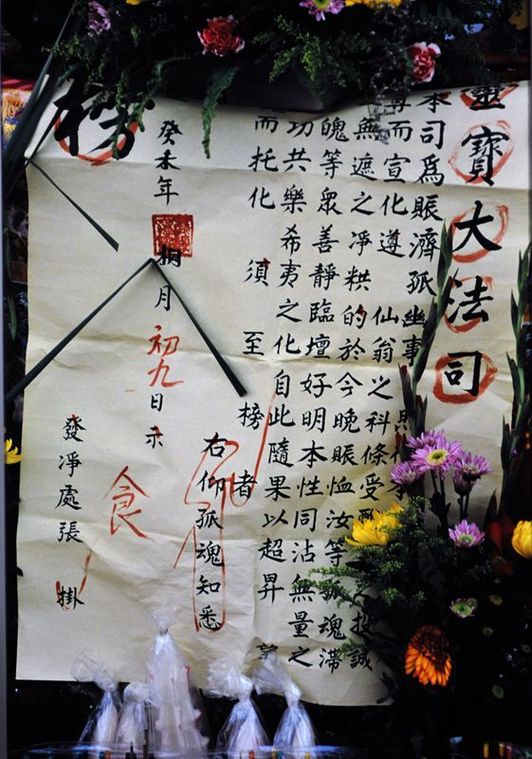 靈寶大法司
本司爲賑濟孤幽事
尊而宣化遵仙翁之科條受
無遮之凈粠的於今晚賑恤汝等孤魂滯
魄等眾善靜臨壇好明本性同沾無量之
功共樂希夷之化自此隨果以超昇
而托化須至榜者
右仰孤魂知悉
癸未年桐月初九日示
食
發凈處張掛
榜